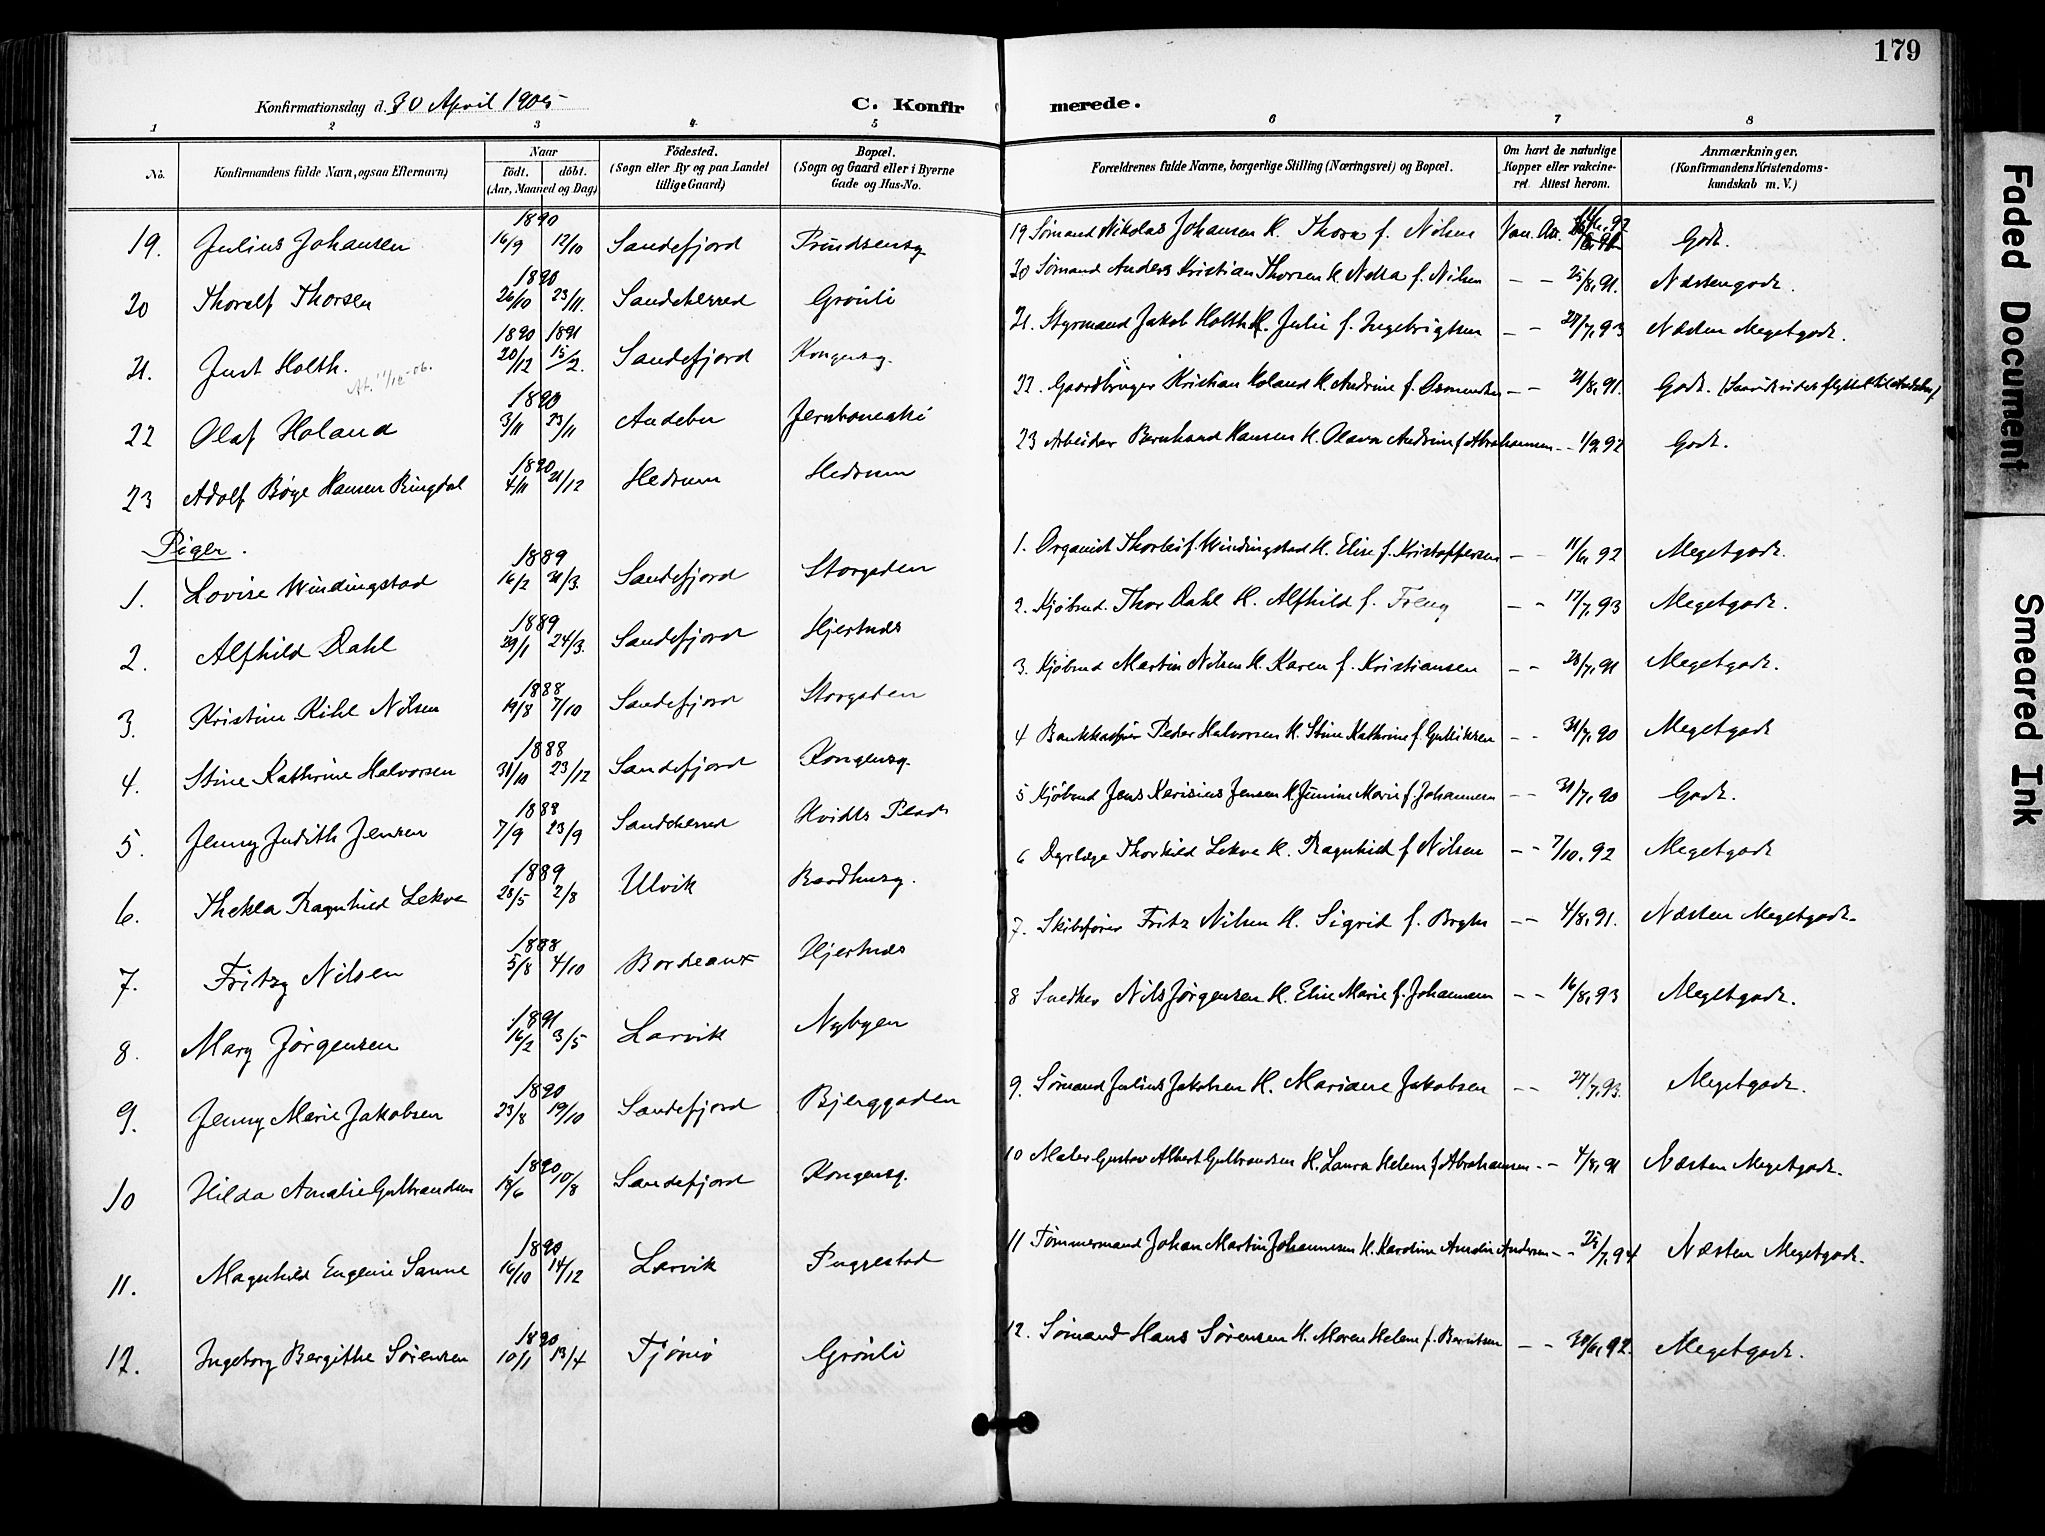 179
Konfirmationsdag d. 30 April 1905
C. Konfirmerede.
1 2 3 4 5 6 7 8
No.
Konfirmandens fulde Navn, ogsaa Efternavn)
Naar
födt. döbt.
(Aar, Maaned og Dag)
Födested.
(Sogn eller By og paa Landet
tillige Gaard)
Bopæl.
(Sogn og Gaard eller i Byerne
Gade og Hus-No.
Forældrenes fulde Navne, borgerlige Stilling (Næringsvei) og Bopæl.
Om havt de naturlige
Kopper eller vakcine-
ret. Attest herom.
Anmærkninger.
(Konfirmandens Kristendoms-
kundskab m. V.)
19. Julius Johansen 1890 16/9 12/10 Sandefjord Prindsensg 19 Sömand Nikolas Johansen H. Thora f. Nilsen Vac. Att. Godt.
20 Thoralf Thorsen 1890 26/10 23/11. Sandeherred Grönli 20 Sömand Anders Kristian Thorsen H. Netta f. Nilsen – – 25/8.91. Næsten godt.
21. Just Holth. 1890 1891 20/12 15/2. Sandefjord Kongensg. 21. Styrmand Jakob Holth H. Julie f. Ingebrigtsen – – 27/7.93 Næsten Megetgodt.
At. 11/12-06.
22 Olaf Holand 1890 3/11 23/11 Andebu Jernbanealle 22. Gaardbruger Kristian Holand H. Andrine f. Osmundsen – – 21/8.91. Godt.
23 Adolf Böye Hansen Bingdal 1890 4/11 21/12 Hedrum Hedrum 23 Arbeider Bernhard Hansen H. Olava Andrine f Abrahamsen – – 1/9.92 Godt.
Piger.
1. Lovise Windingstad 1889 16/2 31/3. Sandefjord Storgaden 1. Organist Thorleif Windingstad H. Elise f. Kristoffersen – – 11/6.92 Megetgodt.
2. Alfhild Dahl 1889 29/1 24/3. Sandefjord Hjertnes 2. Kjöbmd. Thor Dahl H. Alfhild f. Freng – – 17/7.93 Megetgodt.
3. Kristine Kihl Nilsen 1888 19/8 7/10 Sandefjord Storgaden 3. Kjöbmd Martin Nilsen H. Karen f. Kristiansen – – 28/7.91 Megetgodt.
4. Stine Kathrine Halvorsen 1888 31/10 23/12 Sandefjord Kongensg. 4 Bankkasserer Peder Halvorsen H. Stine Kathrine f. Gulliksen – – 31/7.90 Megetgodt
5. Jenny Judith Jensen 1888 7/9 23/9 Sandeherred Hvidts Plads 5 Kjöbmd Jens Jensen H. Marie f. Johannesen – – 31/7.90 Godt.
6. Thekla Ragnhild Lekve 1889 28/5 2/8 Ulvik Raadhusg. 6 Dyrlæge Thorkild Lekve H. Ragnhild f Nilsen – – 7/10.92 Megetgodt
7. Fritzy Nilsen 1888 5/8 4/10 Bordeaux Hjertnes 7. Skibsförer Fritz Nilsen H. Sigrid f. Bryhn – – 4/8.91. Næsten Megetgodt.
8. Mary Jörgensen 1891 16/2 3/5 Larvik Nybyen 8 Snedker Nils Jörgensen H. Elise Marie f. Johannesen – – 16/8.93 Megetgodt.
9. Jenny Marie Jakobsen 1890 23/8 19/10 Sandefjord Bjerggaden 9. Sömand Julius Jakobsen H. Mariane Jakobsen – – 27/7.93. Megetgodt.
10 Hilda Amalie Gulbrandsen 1890 18/6 10/8 Sandefjord Kongensg. 10 Maler Gustav Albert Gulbrandsen H. Laura Helene f Abrahamsen – – 4/8.91 Næsten Megetgodt.
11. Magnhild Eugenie Sanne 1890 16/10 14/12 Larvik Puggestad 11 Tömmermand Johan Martin Johannesen H. Karoline Amalie Andersen – – 25/7.94 Næsten Megetgodt.
12. Ingeborg Bergithe Sörensen 1890 10/1 13/4 Tjömö Grönli 12. Sömand Hans Sörensen H. Maren Helene f. Berntsen – – 30/6.92. Megetgodt.
Faded Document
Smeared Ink